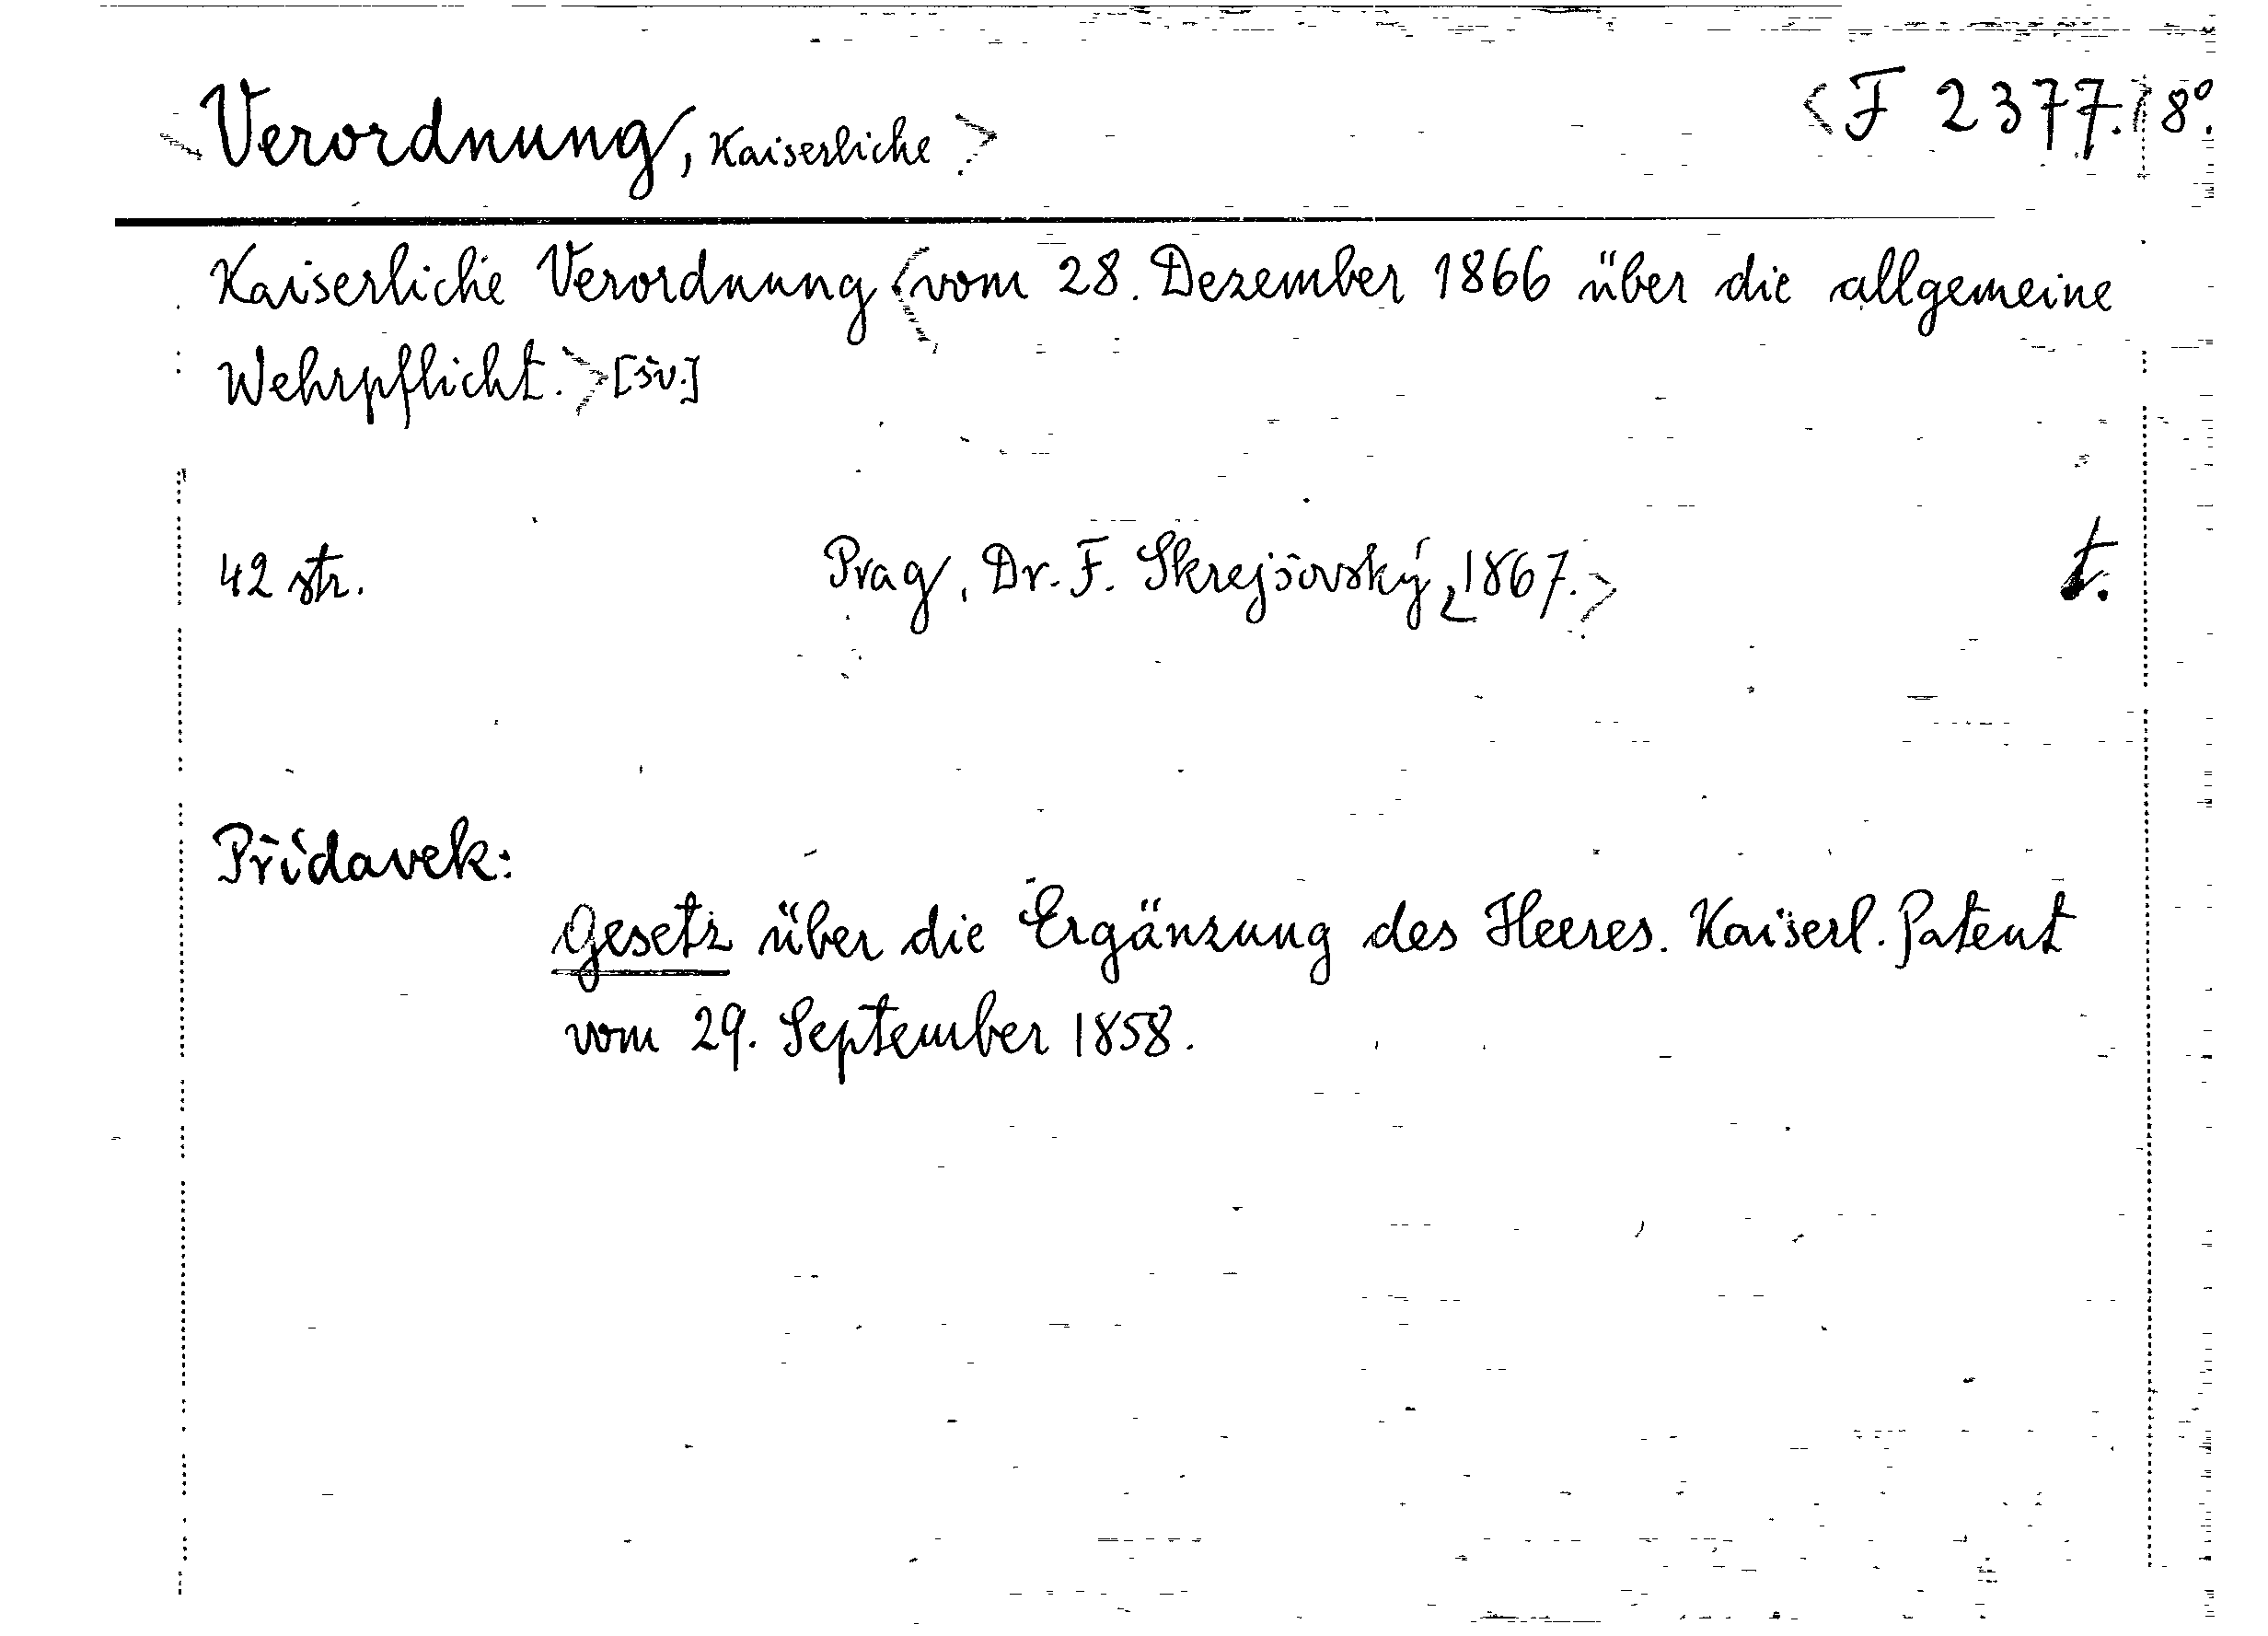 <Verordnung, Kaiserliche> <F 2377.> 8°.
Kaiserliche Verordnung <vom 28. Dezember 1866 über die allgemeine
Wehrpflicht.> [sv.]
42 str. Prag, Dr. F. Skrejšovský <1867.> t.
Přídavek:
Gesetz über die Ergänzung des Heeres. Kaiserl. Patent
vom 29. September 1858.